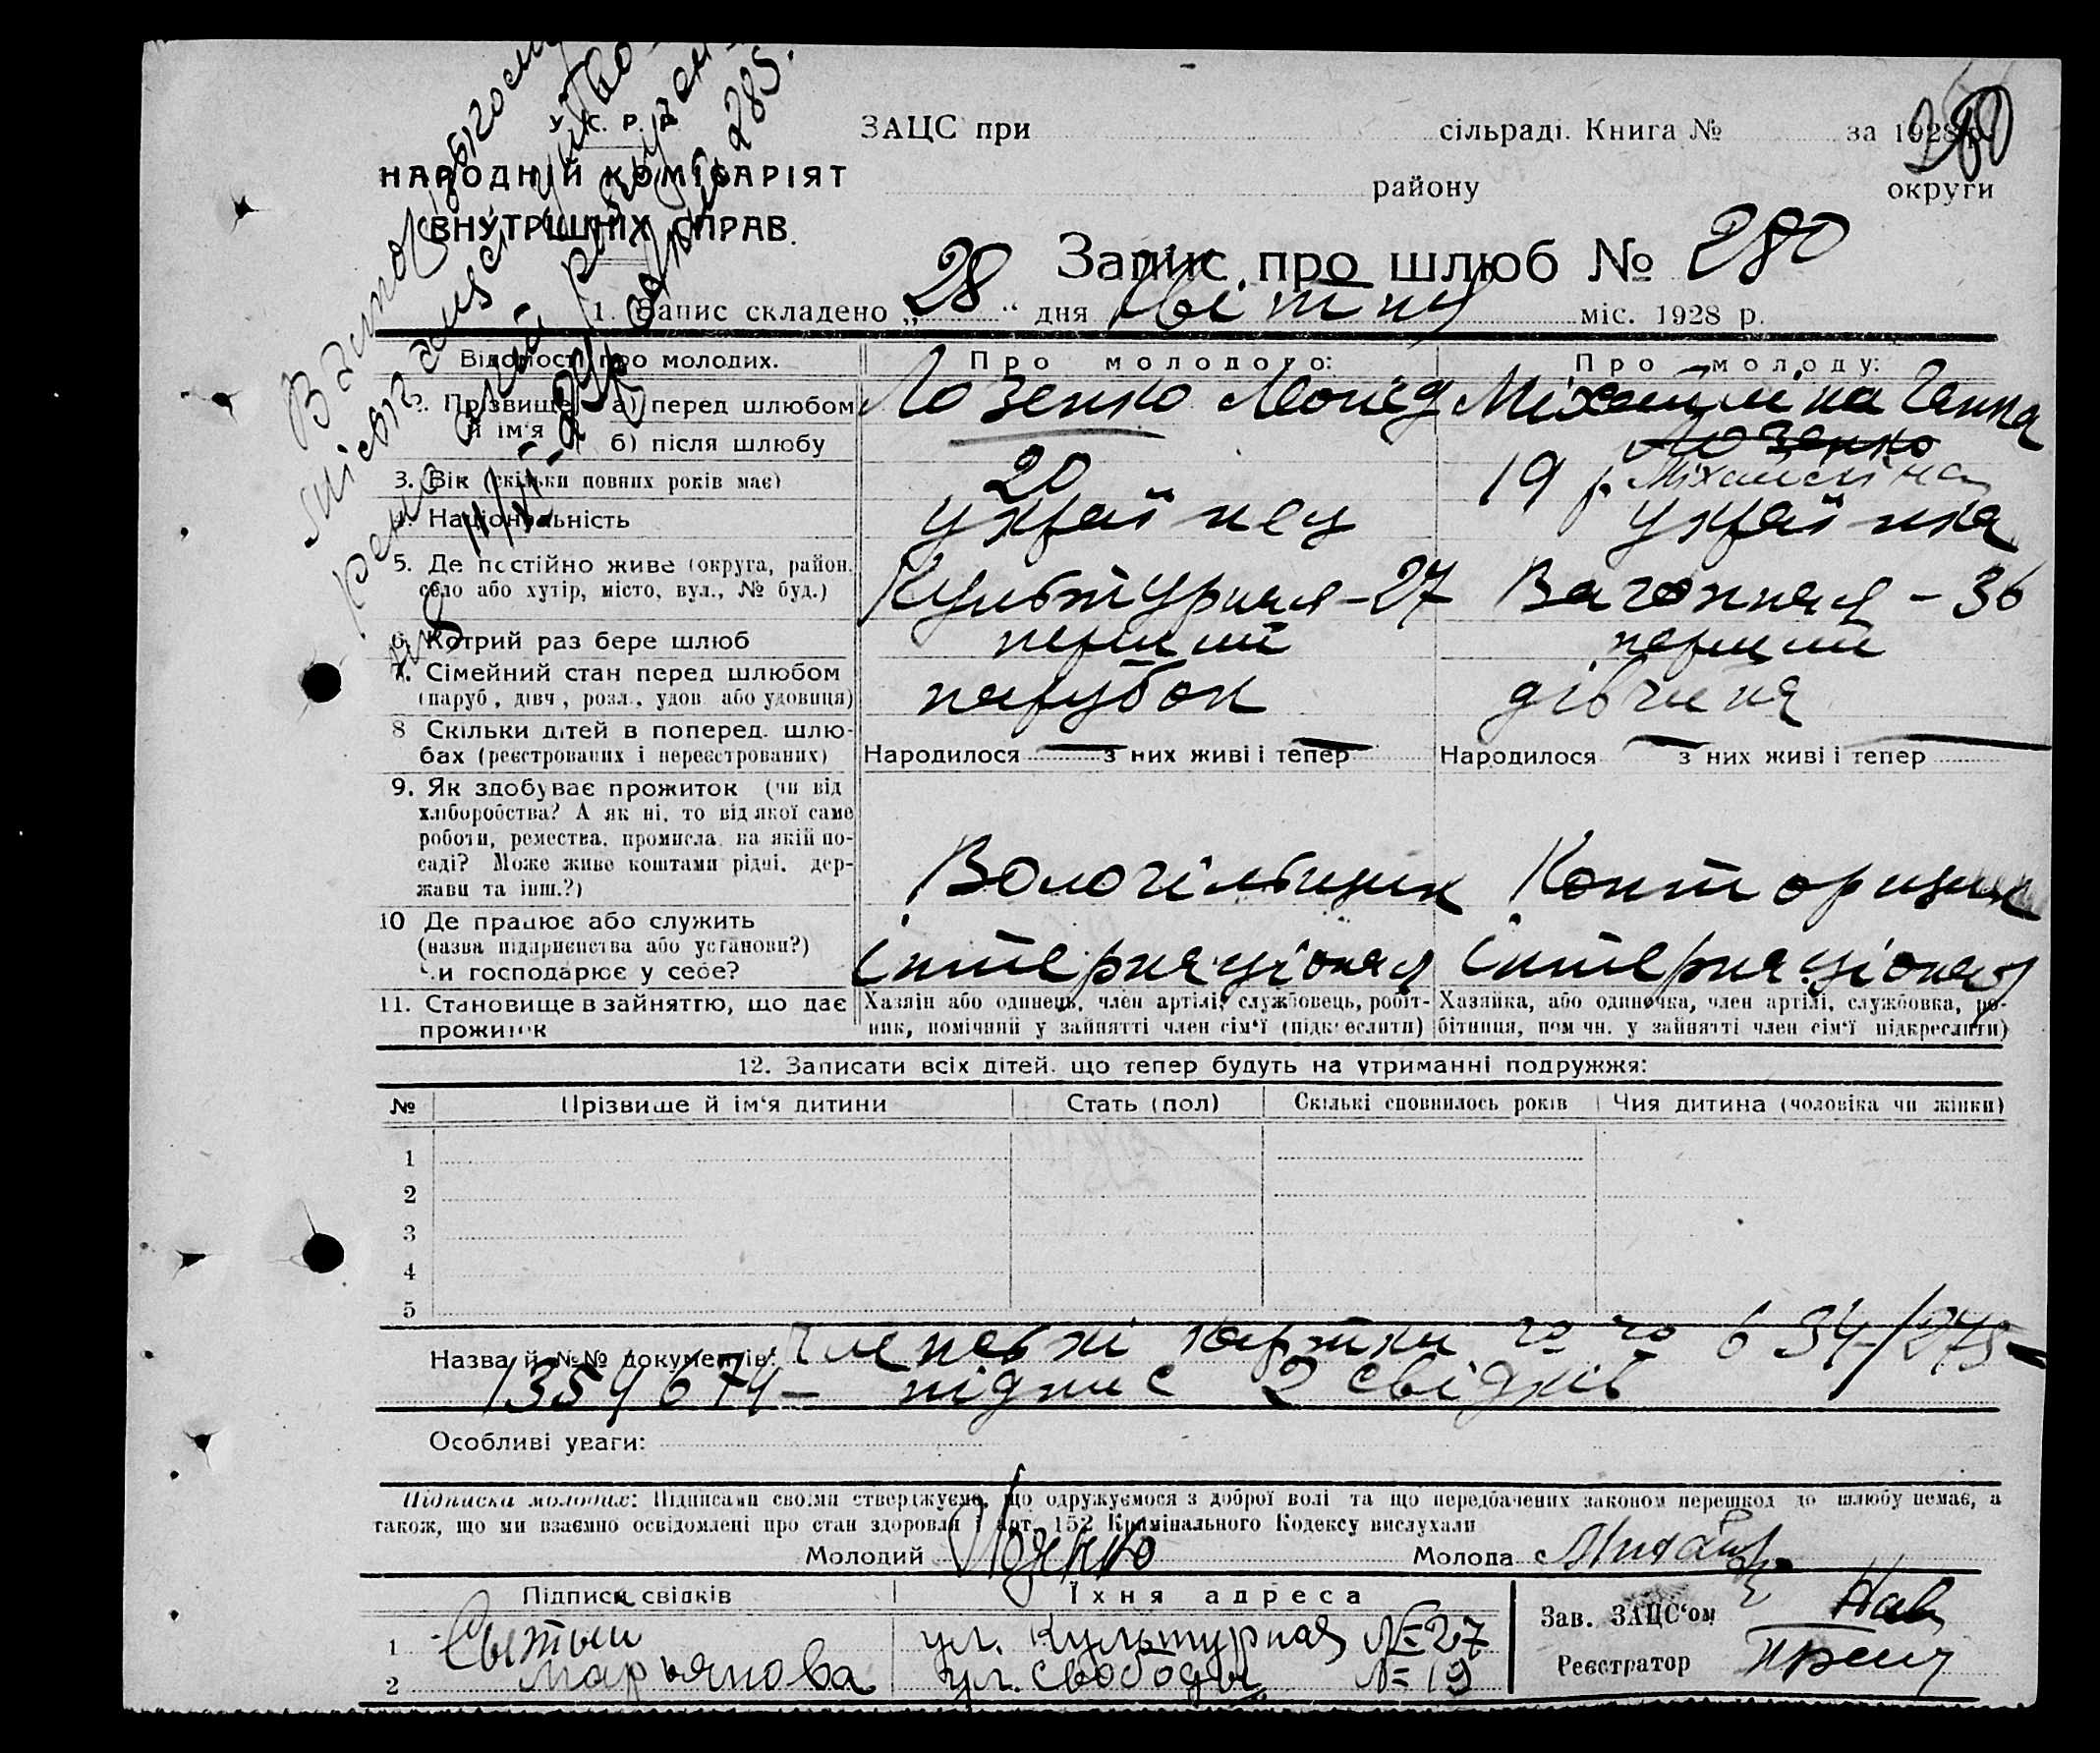 У. С. Р. Р.
НАРОДНІЙ КОМІСАРІЯТ
ВНУТРІШНІХ СПРАВ.
ЗАЦС при сільраді. Книга № за 1928 р.
району округи
280
Запис про шлюб № 280
1. Запис складено „28" дня Квітня міс. 1928 р.
Відомості про молодих.
Про молодого:
Про молоду:
2. Прізвище й ім'я
а) перед шлюбом
Лозенко Леонід
Міхайліна Ганна
б) після шлюбу
Лозенко
Міхайліна
3. Вік (скільки повних років має)
20
19 р.
4. Національність
українец
українка
5. Де постійно живе (округа, район,
село або хутір, місто, вул., № буд.)
Культурная-27
Вагонная - 36
6. Котрий раз бере шлюб
перший
перший
7. Сімейний стан перед шлюбом
(паруб, дівч, розл., удов. або удовиця)
парубок
дівчина
8 Скільки дітей в поперед. шлю-
бах (реєстрованих і нереєстрованих)
Народилося — з них живі і тепер —
Народилося — з них живі і тепер —
9. Як здобуває прожиток (чи від
хліборобства? А як ні, то від якої саме
роботи, ремества, промисла, на якій по-
саді? Може живе коштами рідні, дер-
жави та інш.?)
Вологільщик
Конторщик
10 Де працює або служить
(назва підприємства або установи?)
Чи господарює у себе?
Інтернаціонал
Інтернаціонал
11. Становище в зайняттю, що дає
прожиток
Хазяїн або одинець, член артілі, службовець, робіт-
ник, помічний у зайнятті член сім'ї (підкреслити)
Хазяйка, або одиночка, член артілі, службовка, ро-
бітниця, пом чн. у зайнятті член сім'ї підкреслити)
12. Записати всіх дітей, що тепер будуть на утриманні подружжя:
№ Прізвище й ім'я дитини Стать (пол) Скількі сповнилось років Чия дитина (чоловіка чи жінки)
1
2
3
4
5
Назва й №№ документів: Членські картки
135 / 674 - підпис 2 свідків
Особливі уваги:
Підписка молодих: Підписами своїми стверджуємо, що одружуємося з доброї волі та що передбачених законом перешкод до шлюбу немає, а
також, що ми взаємно освідомлені про стан здоровля і арт. 152 Кримінального Кодексу вислухали
Молодий Лозенко Молода
Підписи свідків
Їхня адреса
1 Сытый ул. Культурная № 27
2 Марьянова ул. Свободы № 19
Зав. ЗАЦС'ом
Реєстратор